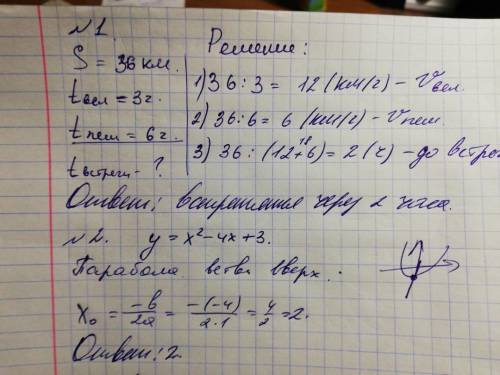 №1.
S = 36 км.
t вел = 3 г.
t пеш = 6 г.
t встречи - ?
Решение:
1) 36 : 3 = 12 (км/г) - V вел.
2) 36 : 6 = 6 (км/г) - V пеш.
18
3) 36 : (12+6) = 2 (ч) - до встре
Ответ: встретятся через 2 часа.
№2. y = x² - 4x + 3.
Парабола ветви вверх.
x₀ = -b/2a = -(-4)/2·1 = 4/2 = 2.
Ответ: 2